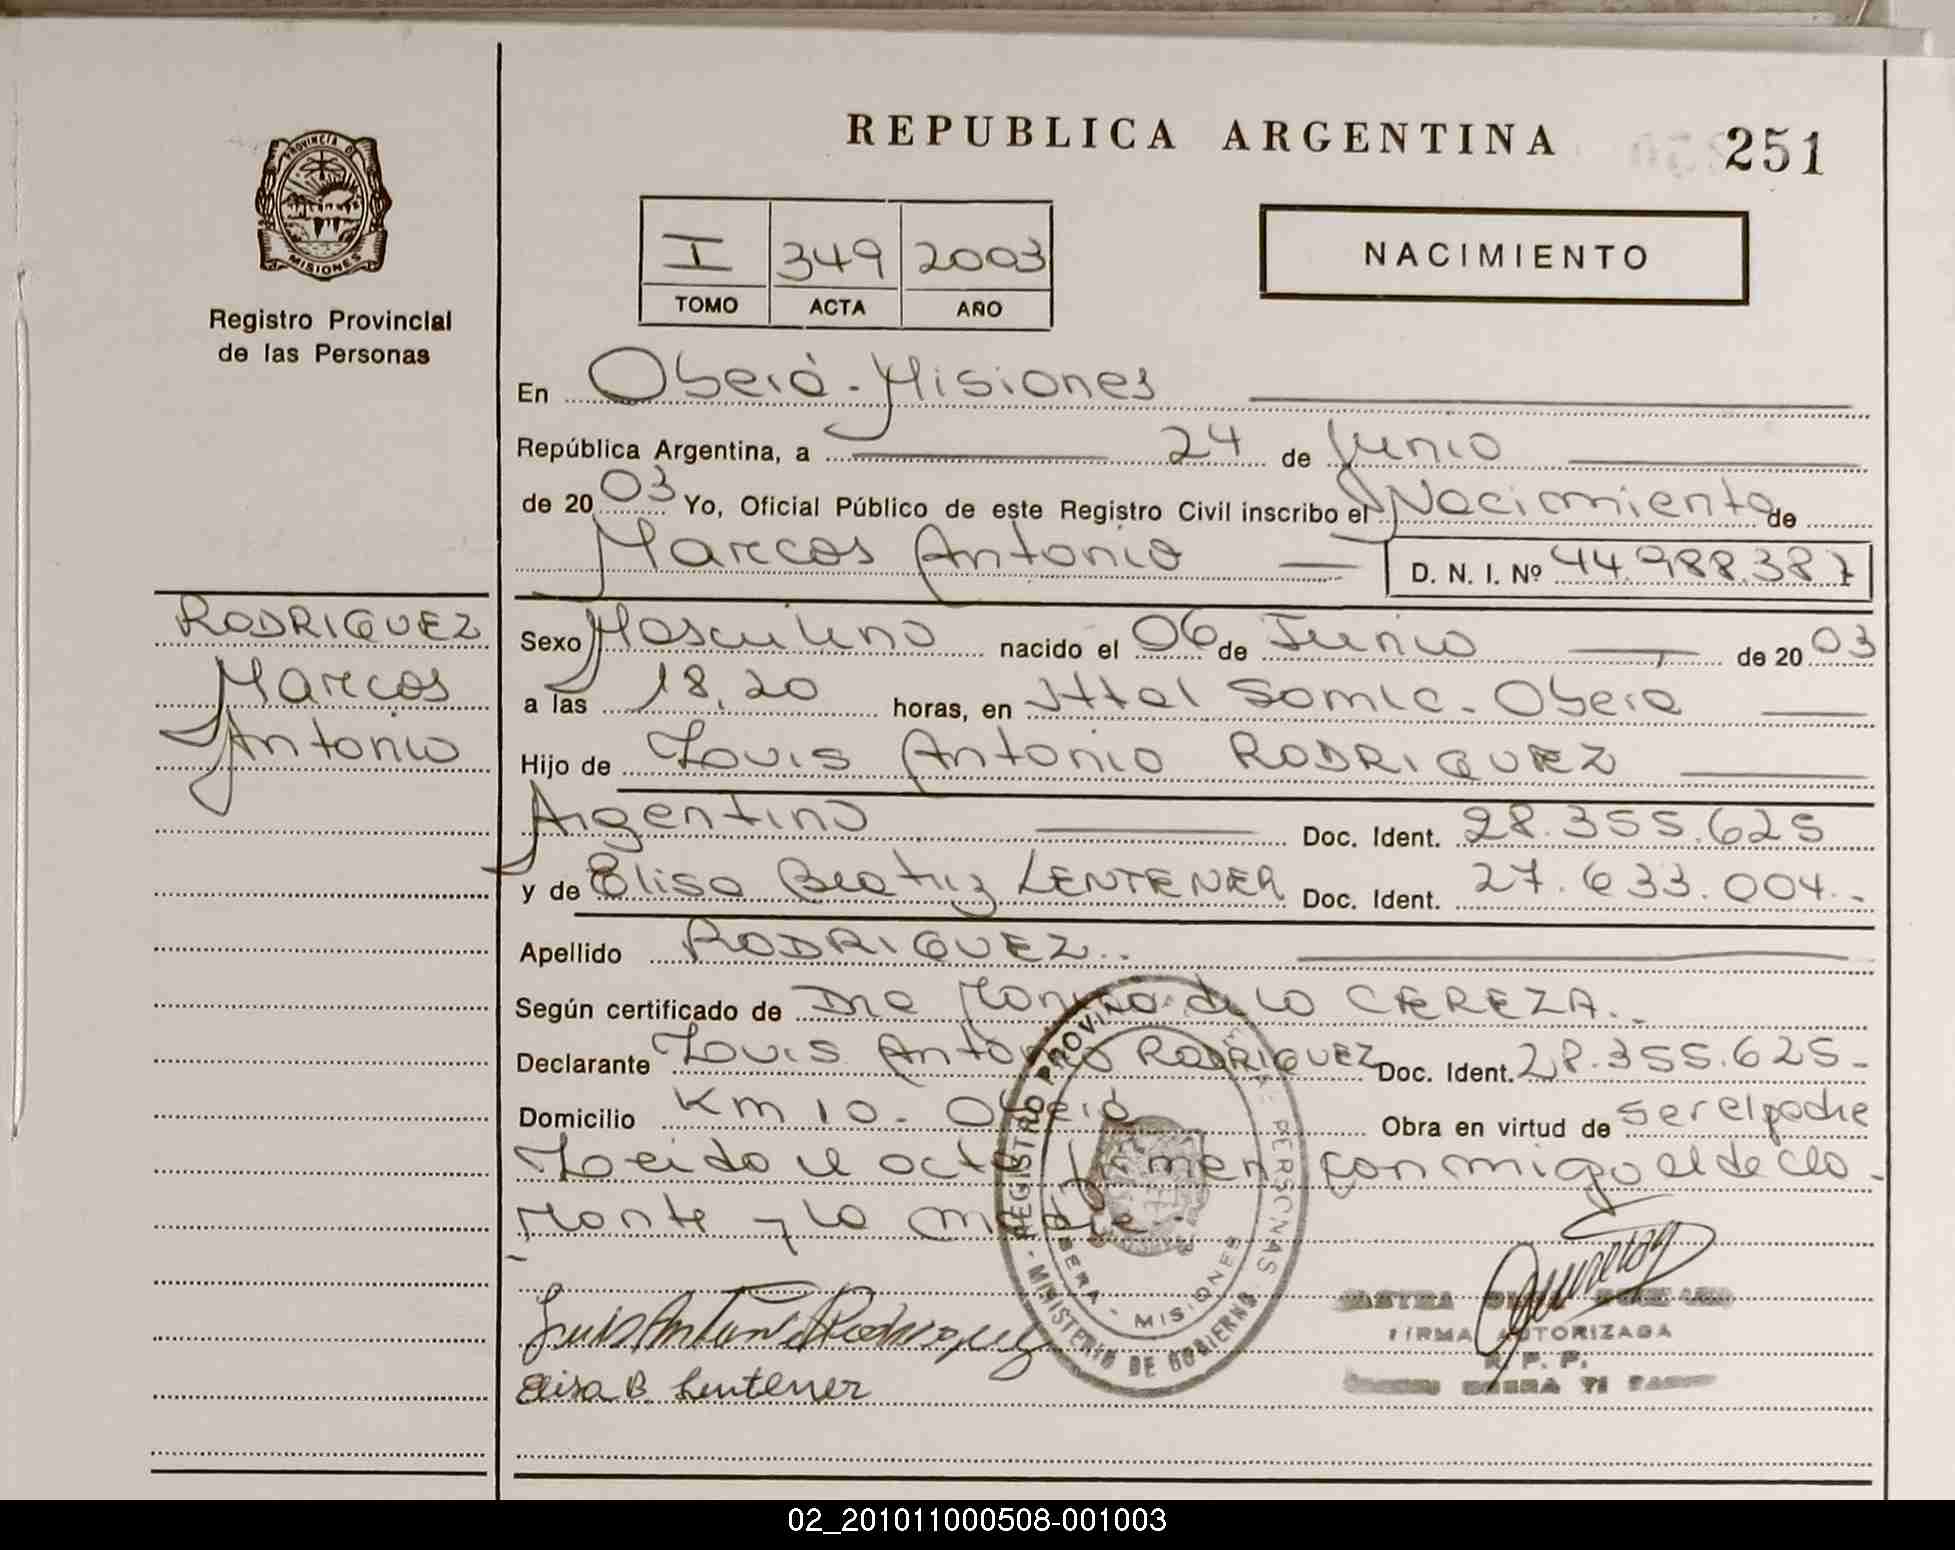 REPUBLICA ARGENTINA
251
PROVINCIA DE
MISIONES
Registro Provincial
de las Personas
I 349 2003
TOMO ACTA AÑO
NACIMIENTO
En Oberá - Misiones
República Argentina, a 24 de Junio
de 2003 Yo, Oficial Público de este Registro Civil inscribo el Nacimiento de
Marcos Antonio D. N. I. Nº 44.988.387
RODRIGUEZ
Marcos
Antonio
Sexo Masculino nacido el 06 de Junio de 2003
a las 18,20 horas, en Htal Samic - Oberá
Hijo de Luis Antonio RODRIGUEZ
Argentino Doc. Ident. 28.355.625
y de Elisa Beatriz LENTENER Doc. Ident. 27.633.004.-
Apellido RODRIGUEZ..
Según certificado de Dra de la CEREZA..
Declarante Luis Antonio RODRIGUEZ Doc. Ident. 28.355.625-
Domicilio Km 10 - Oberá Obra en virtud de ser el padre
Leida el acta firman conmigo el decla-
rante y la madre.
REGISTRO PROVINCIAL DE LAS PERSONAS
MINISTERIO DE GOBIERNO
OBERA - MISIONES
Luis Antonio Rodriguez
Elisa B. Lentener
FIRMA AUTORIZADA
R. P. P.
02_201011000508-001003